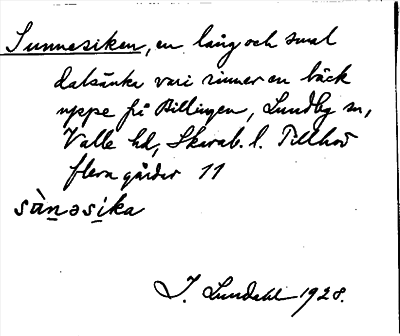 Sunnesiken, en lång och smal
dalsänka vari rinner en bäck
uppe på Billingen, Lundby sn,
Valle hd, Skarab. l. Tillhör
flera gårdar 11
sùnəsika
J. Lundahl 1928.